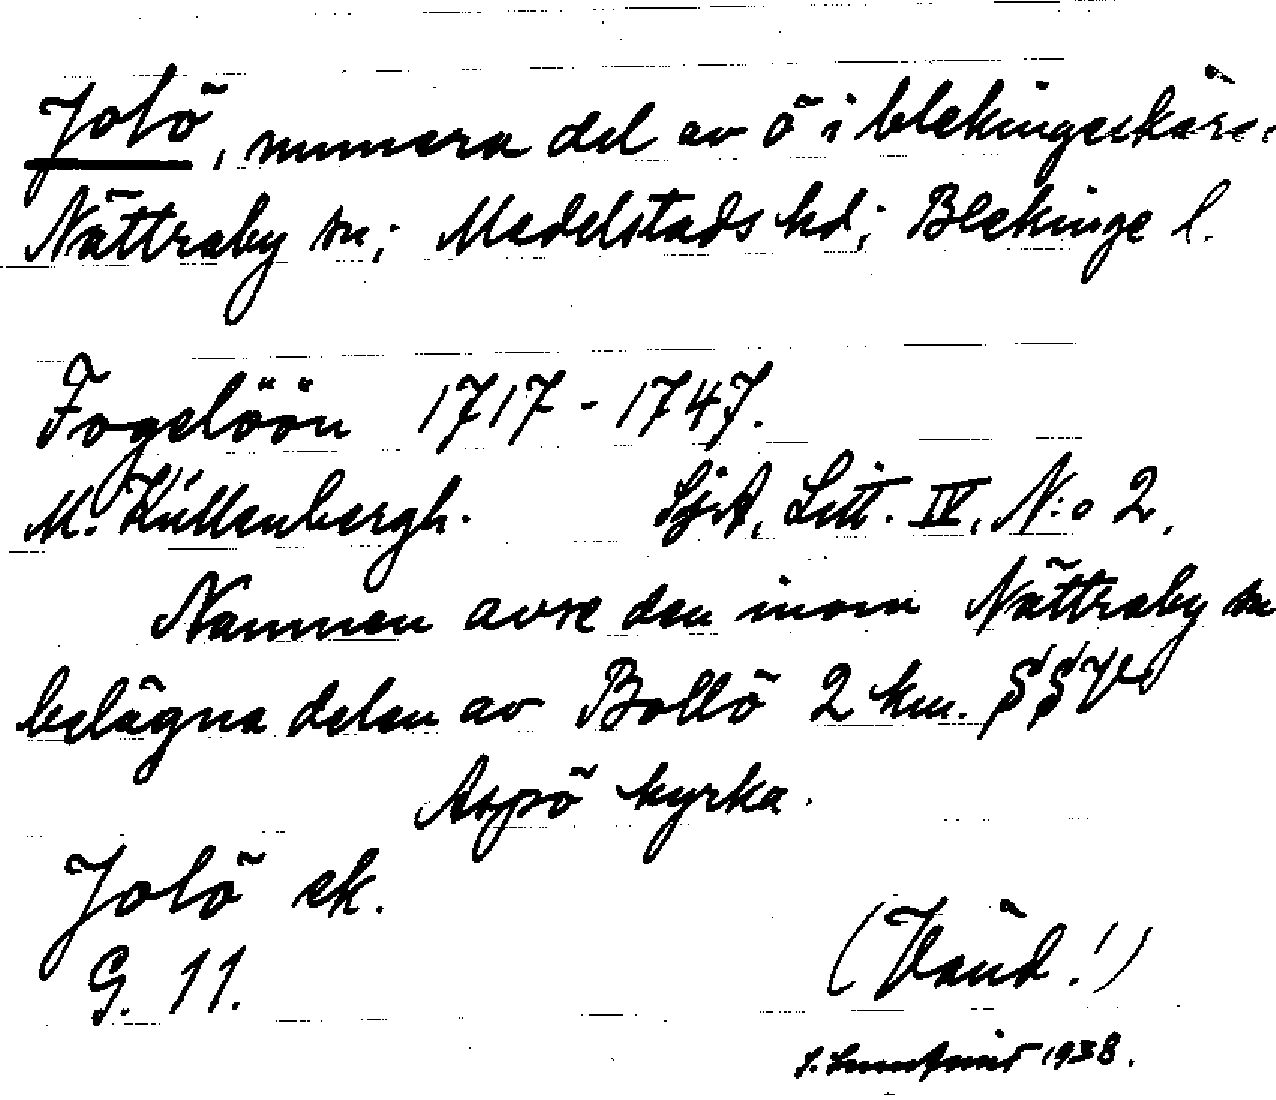 Jolö, numera del av ö i blekingeskärg.
Nättraby sn; Medelstads hd; Blekinge l.
Fogelöön 1717 - 1747.
M. Küllenbergh. SjA, Litt. IV, N:o 2.
Namnen avse den inom Nättraby sn
belägna delen av Bollö 2 km. SSV
Aspö kyrka.
Jolö ek.
G. 11.
(Vänd!)
1938.